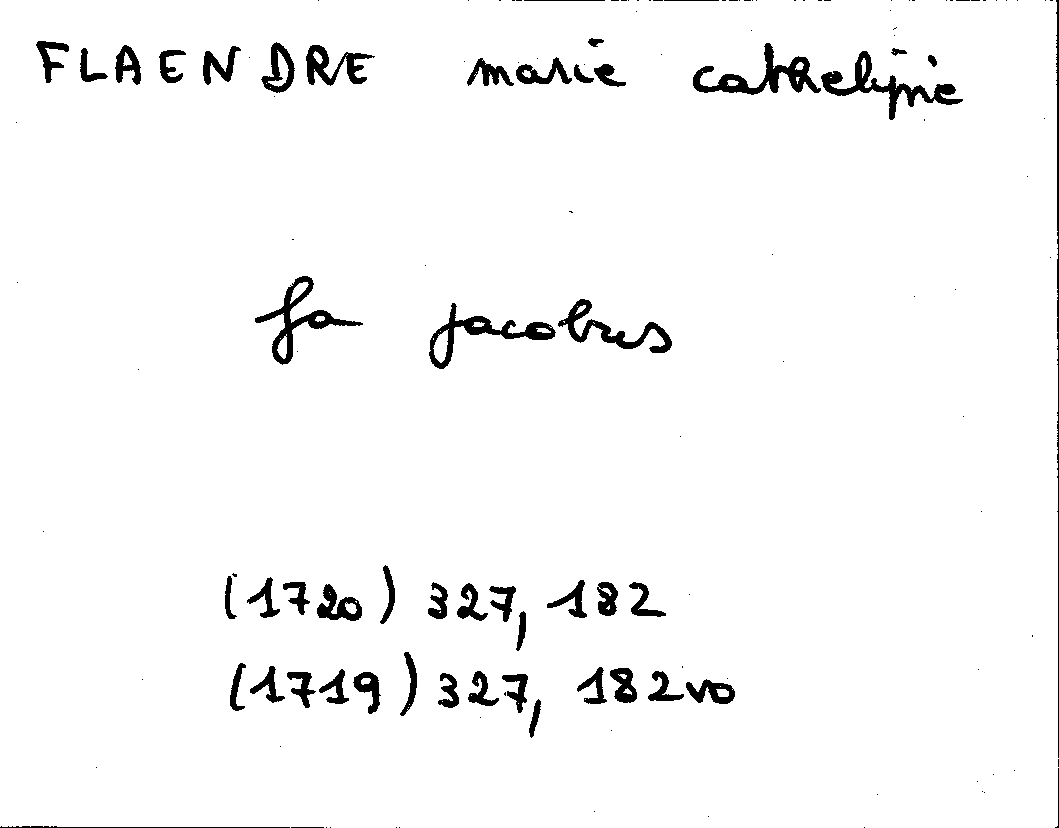 FLAENDRE marie cathelijne
fa jacobus
(1720) 327, 182
(1719) 327, 182vo